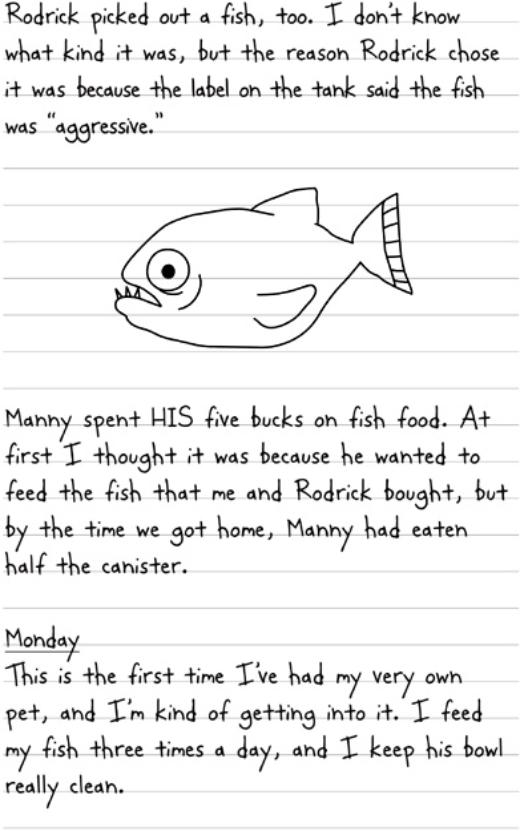 Rodrick picked out a fish, too. I don't know
what kind it was, but the reason Rodrick chose
it was because the label on the tank said the fish
was "aggressive."
Manny spent HIS five bucks on fish food. At
first I thought it was because he wanted to
feed the fish that me and Rodrick bought, but
by the time we got home, Manny had eaten
half the canister.
Monday
This is the first time I've had my very own
pet, and I'm kind of getting into it. I feed
my fish three times a day, and I keep his bowl
really clean.